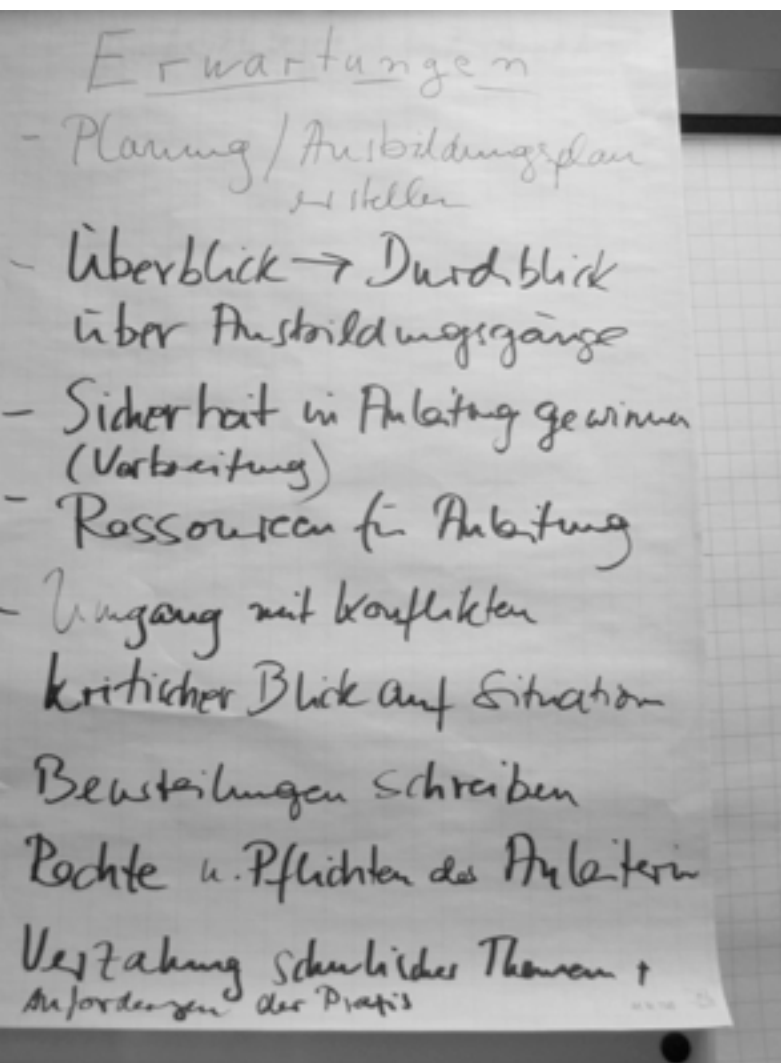 Erwartungen
- Planung / Ausbildungsplan
erstellen
- Überblick → Durchblick
über Ausbildungsgänge
- Sicherheit in Anleitung gewinnen
(Vorbereitung)
- Ressourcen für Anleitung
- Umgang mit Konflikten
kritischer Blick auf Situation
Beurteilungen schreiben
Rechte u. Pflichten der Anleiterin
Verzahnung schulischer Themen +
Anforderungen der Praxis